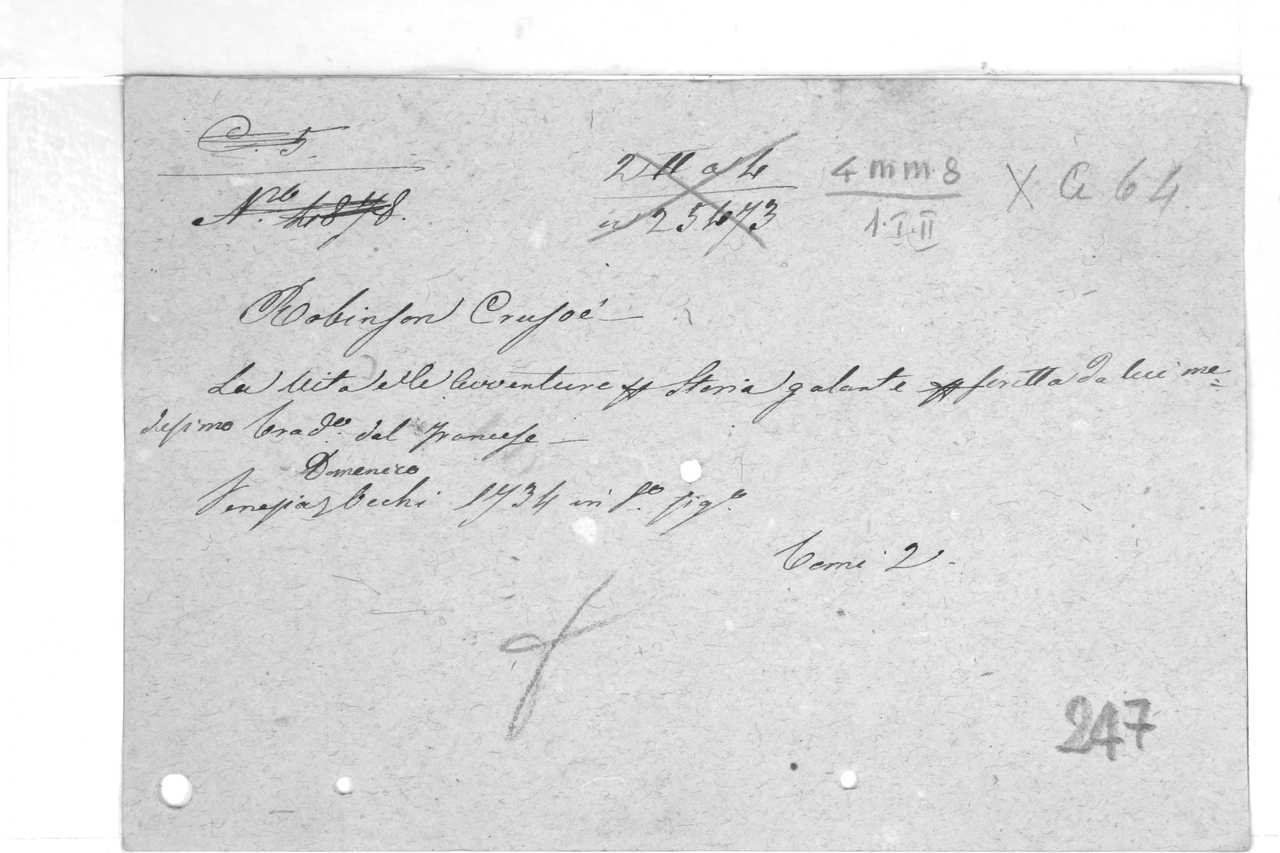 C. 5.
Nro 4878.
2 11 a 4
in 25473
4 mm 8
1. I. II
X a 64
Robinson Crusoé —
La Vita e le Avventure Storia galante scritta da lui me=
desimo Trado. dal francese —
Domenico
Venezia Occhi 1734 in 8o. figo.
Tomi 2.
247